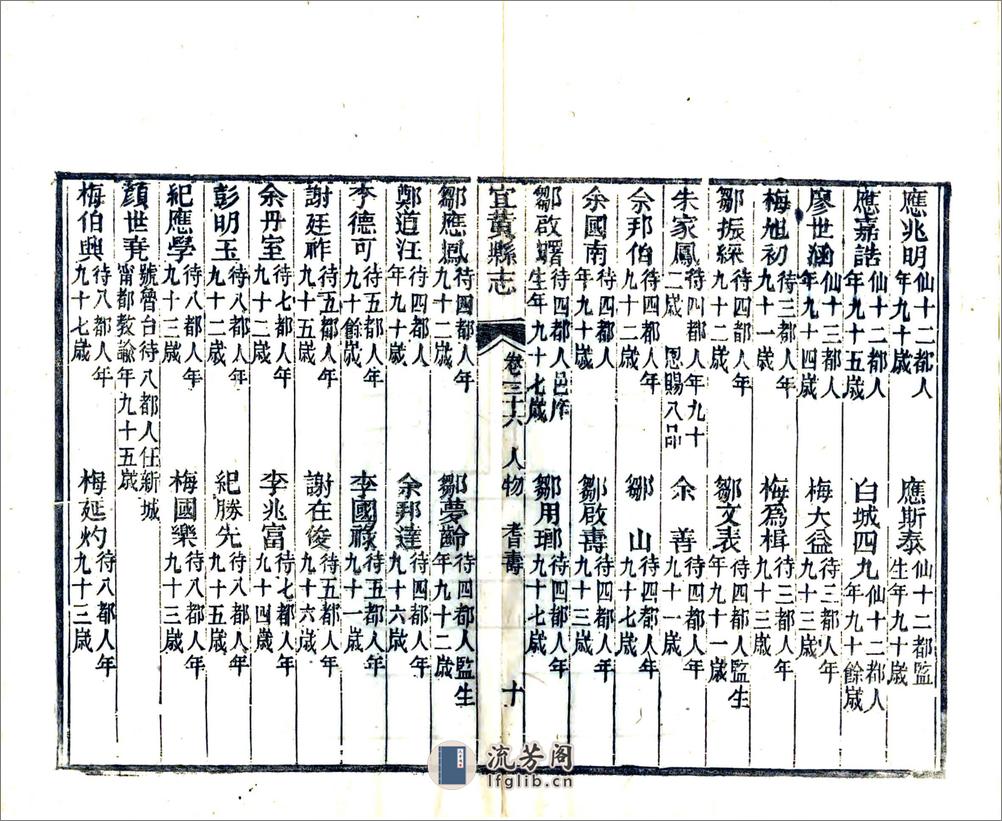 應兆明仙十二都人年九十歲 應斯泰仙十二都監生年九十歲
應嘉誥仙十二都人年九十五歲 白城四九仙十二都人年九十餘歲
廖世涵仙十三都人年九十四歲 梅大益待三都人年九十三歲
梅旭初待三都人年九十一歲 梅為楫待三都人年九十三歲
鄒振綵待四都人年九十二歲 鄒文表待四都人監生年九十一歲
朱家鳳待四都人年九十二歲恩賜八品 余善待四都人年九十一歲
余邦伯待四都人年九十二歲 鄒山待四都人年九十七歲
余國南待四都人年九十歲 鄒啟壽待四都人年九十三歲
鄒啟曙待四都人邑庠生年九十七歲 鄒用瑯待四都人年九十七歲
宜黃縣志 卷三十六 人物 耆壽 十
鄒應鳳待四都人年九十二歲 鄒夢齡待四都人監生年九十二歲
鄭道汪待四都人年九十歲 余邦達待四都人年九十六歲
李德可待五都人年九十餘歲 李國祿待五都人年九十一歲
謝廷祚待五都人年九十五歲 謝在俊待五都人年九十六歲
余丹室待七都人年九十二歲 李兆富待七都人年九十四歲
彭明玉待八都人年九十二歲 紀勝先待八都人年九十五歲
紀應學待八都人年九十三歲 梅國樂待八都人年九十三歲
顏世堯號魯台待八都人任新城甯都教諭年九十五歲
梅伯興待八都人年九十七歲 梅延灼待八都人年九十三歲
流芳阁
lfglib.cn